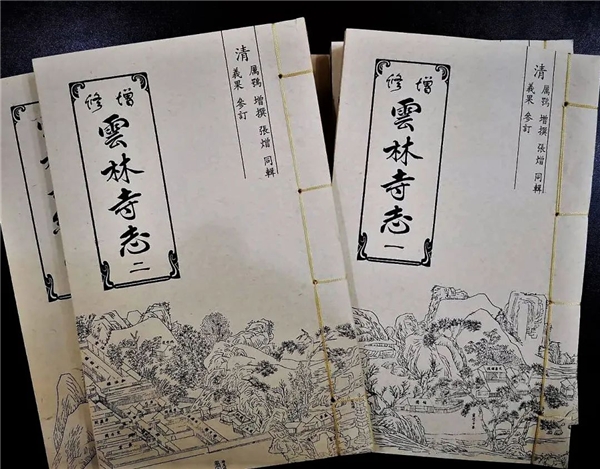 清
厲鶚 增撰 張熷 同輯
義果 參訂
增修
雲林寺志 二
清
厲鶚 增撰 張熷 同輯
義果 參訂
增修
雲林寺志 一
修